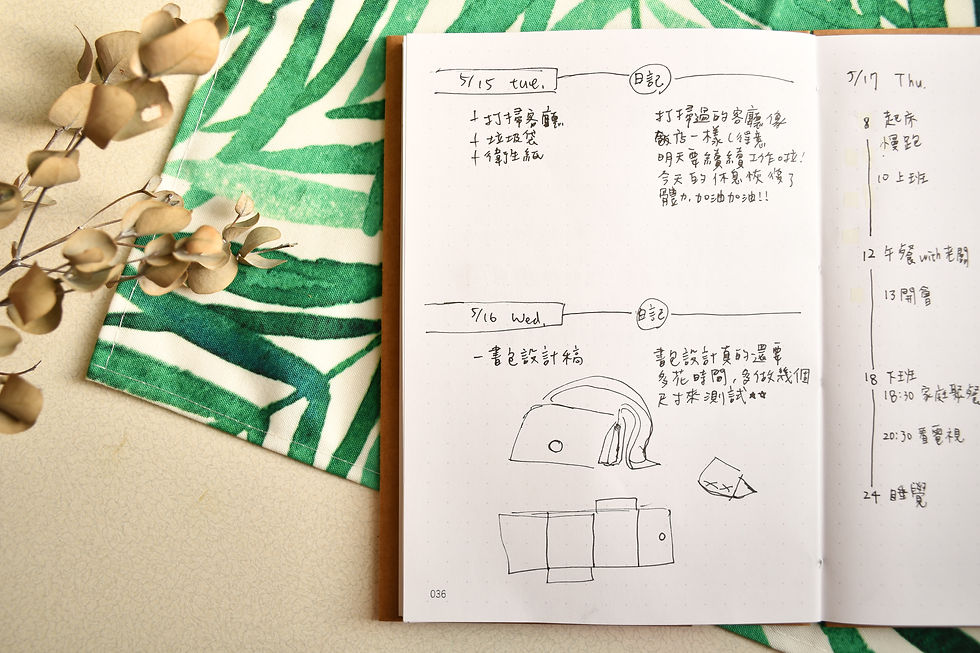 5/15 tue. 日記
+打掃客廳
+垃圾袋
+衛生紙
打掃過的客廳像
飯店一樣 (得意
明天要繼續工作啦!
今天的休息恢復了
體力,加油加油!!
5/16 Wed. 日記
-書包設計稿
書包設計真的還要
多花時間,多做幾個
尺寸來測試☆☆
036
5/17 Thu.
8 起床
慢跑
10 上班
12 午餐 with 老闆
13 開會
18 下班
18:30 家庭聚餐
20:30 看電視
24 睡覺